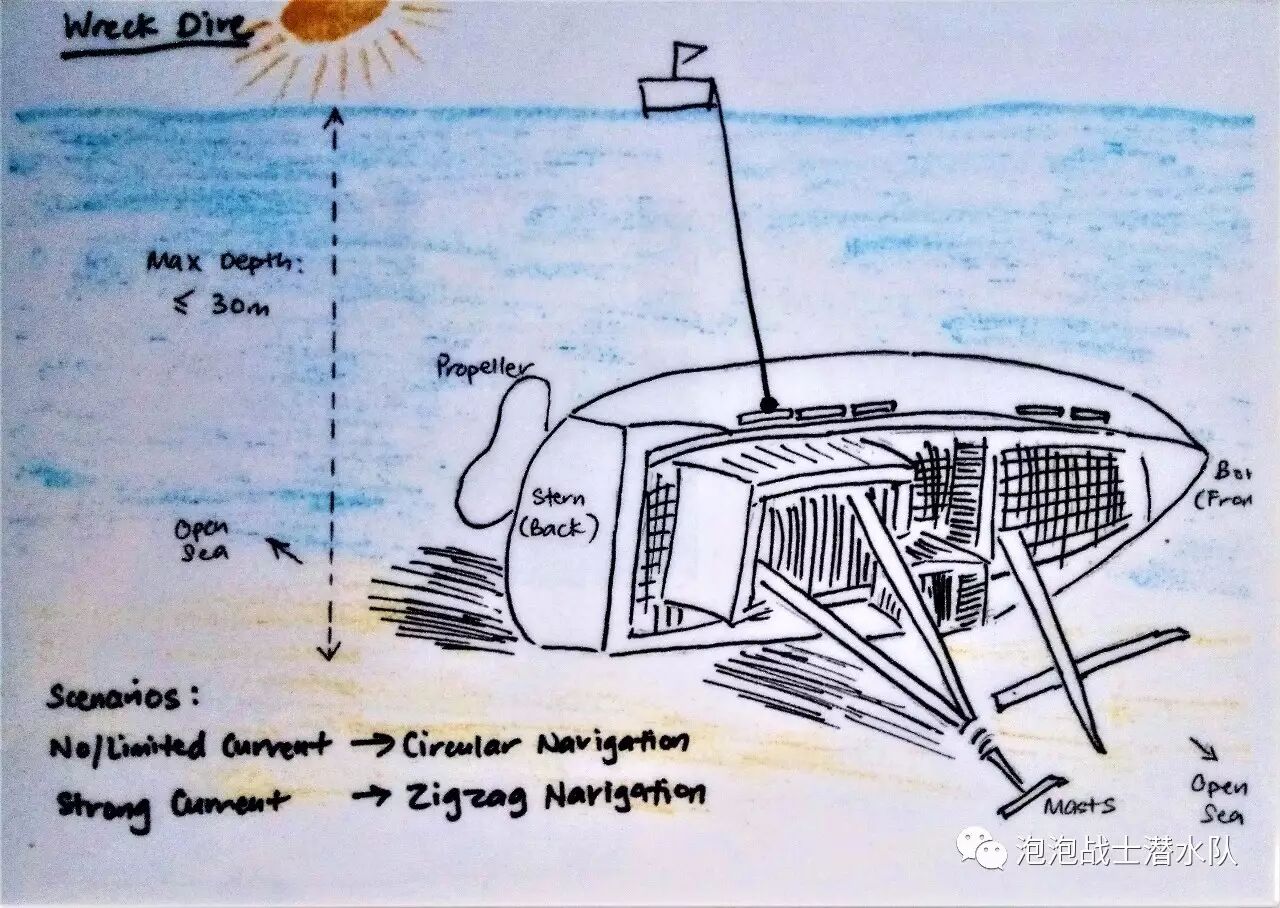 Wreck Dive
Max Depth:
≤ 30m
Propeller
Stern
(Back)
Open
Sea
Scenarios:
No/Limited Current → Circular Navigation
Strong Current → Zigzag Navigation
Masts
Open
Sea
泡泡战士潜水队